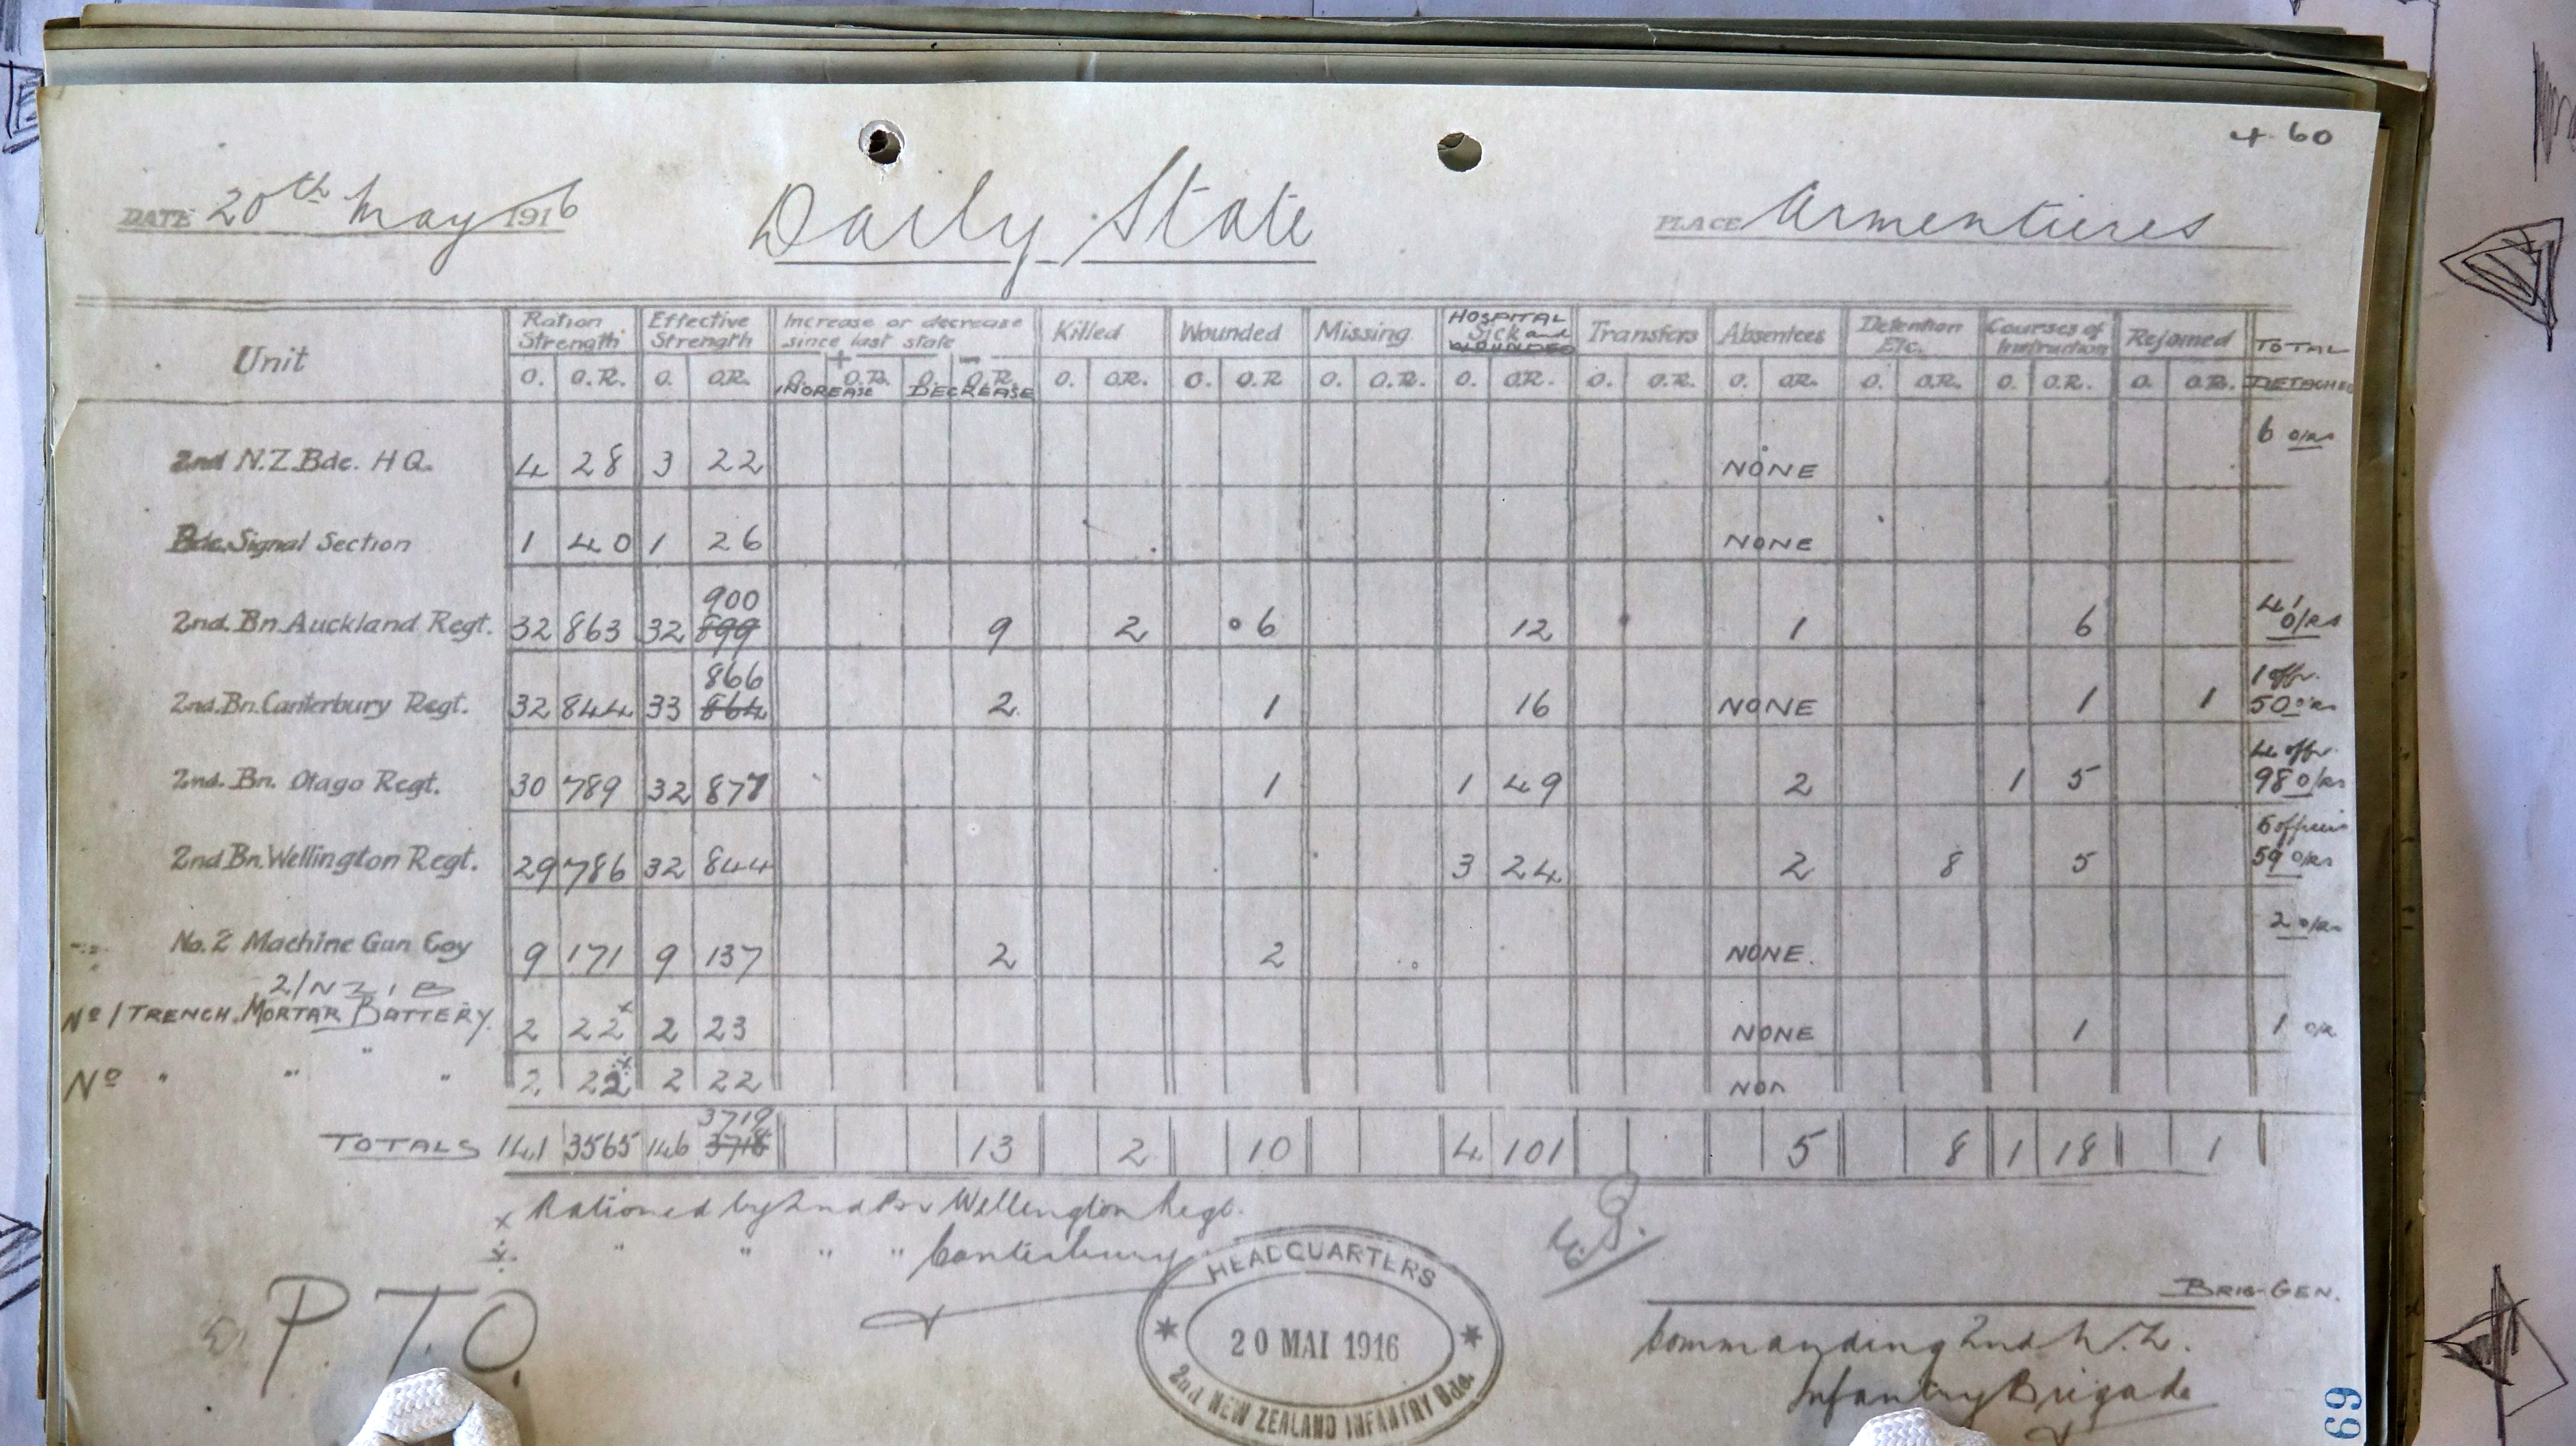 4 60
DATE 20th May 1916 Daily State PLACE Armentieres
Unit Ration Strength Effective Strength Increase or decrease since last state Killed Wounded Missing HOSPITAL Sick and WOUNDED Transfers Absentees Detention Etc. Courses of Instruction Rejoined TOTAL DETACHED
+ -
O. O.R. O. O.R. O. O.R. O. O.R. O. O.R. O. O.R O. O.R. O. O.R. O. O.R. O. O.R. O. O.R. O. O.R. O. O.R.
INCREASE DECREASE
2nd N.Z. Bde. H Q. 4 28 3 22 NONE 6 o/rs
Bde. Signal Section 1 40 1 26 NONE
900
2nd. Bn. Auckland Regt. 32 863 32 899 9 2 6 12 1 6 41 o/rs
866
2nd. Bn. Canterbury Regt. 32 844 33 864 2 1 16 NONE 1 1 1 offr. 50 o/rs
2nd. Bn. Otago Regt. 30 789 32 877 1 1 49 2 1 5 4 offr. 98 o/rs
2nd Bn. Wellington Regt. 29 786 32 844 3 24 2 8 5 officers 59 o/rs
No. 2 Machine Gun Coy 9 171 9 137 2 2 NONE. 2 o/rs
2/NZIB
No 1 TRENCH MORTAR BATTERY. 2 22 x 2 23 NONE 1 1 o/r
No " " " 2 22 x 2 22 NON
3719
TOTALS 141 3565 146 3718 13 2 10 4 101 5 8 1 18 1
x Rationed by 2nd Bn Wellington Regt.
x " " " " Canterbury
P.T.O.
HEADQUARTERS
20 MAI 1916
2nd NEW ZEALAND INFANTRY Bde.
BRIG-GEN.
Commanding 2nd N.Z.
Infantry Brigade
69